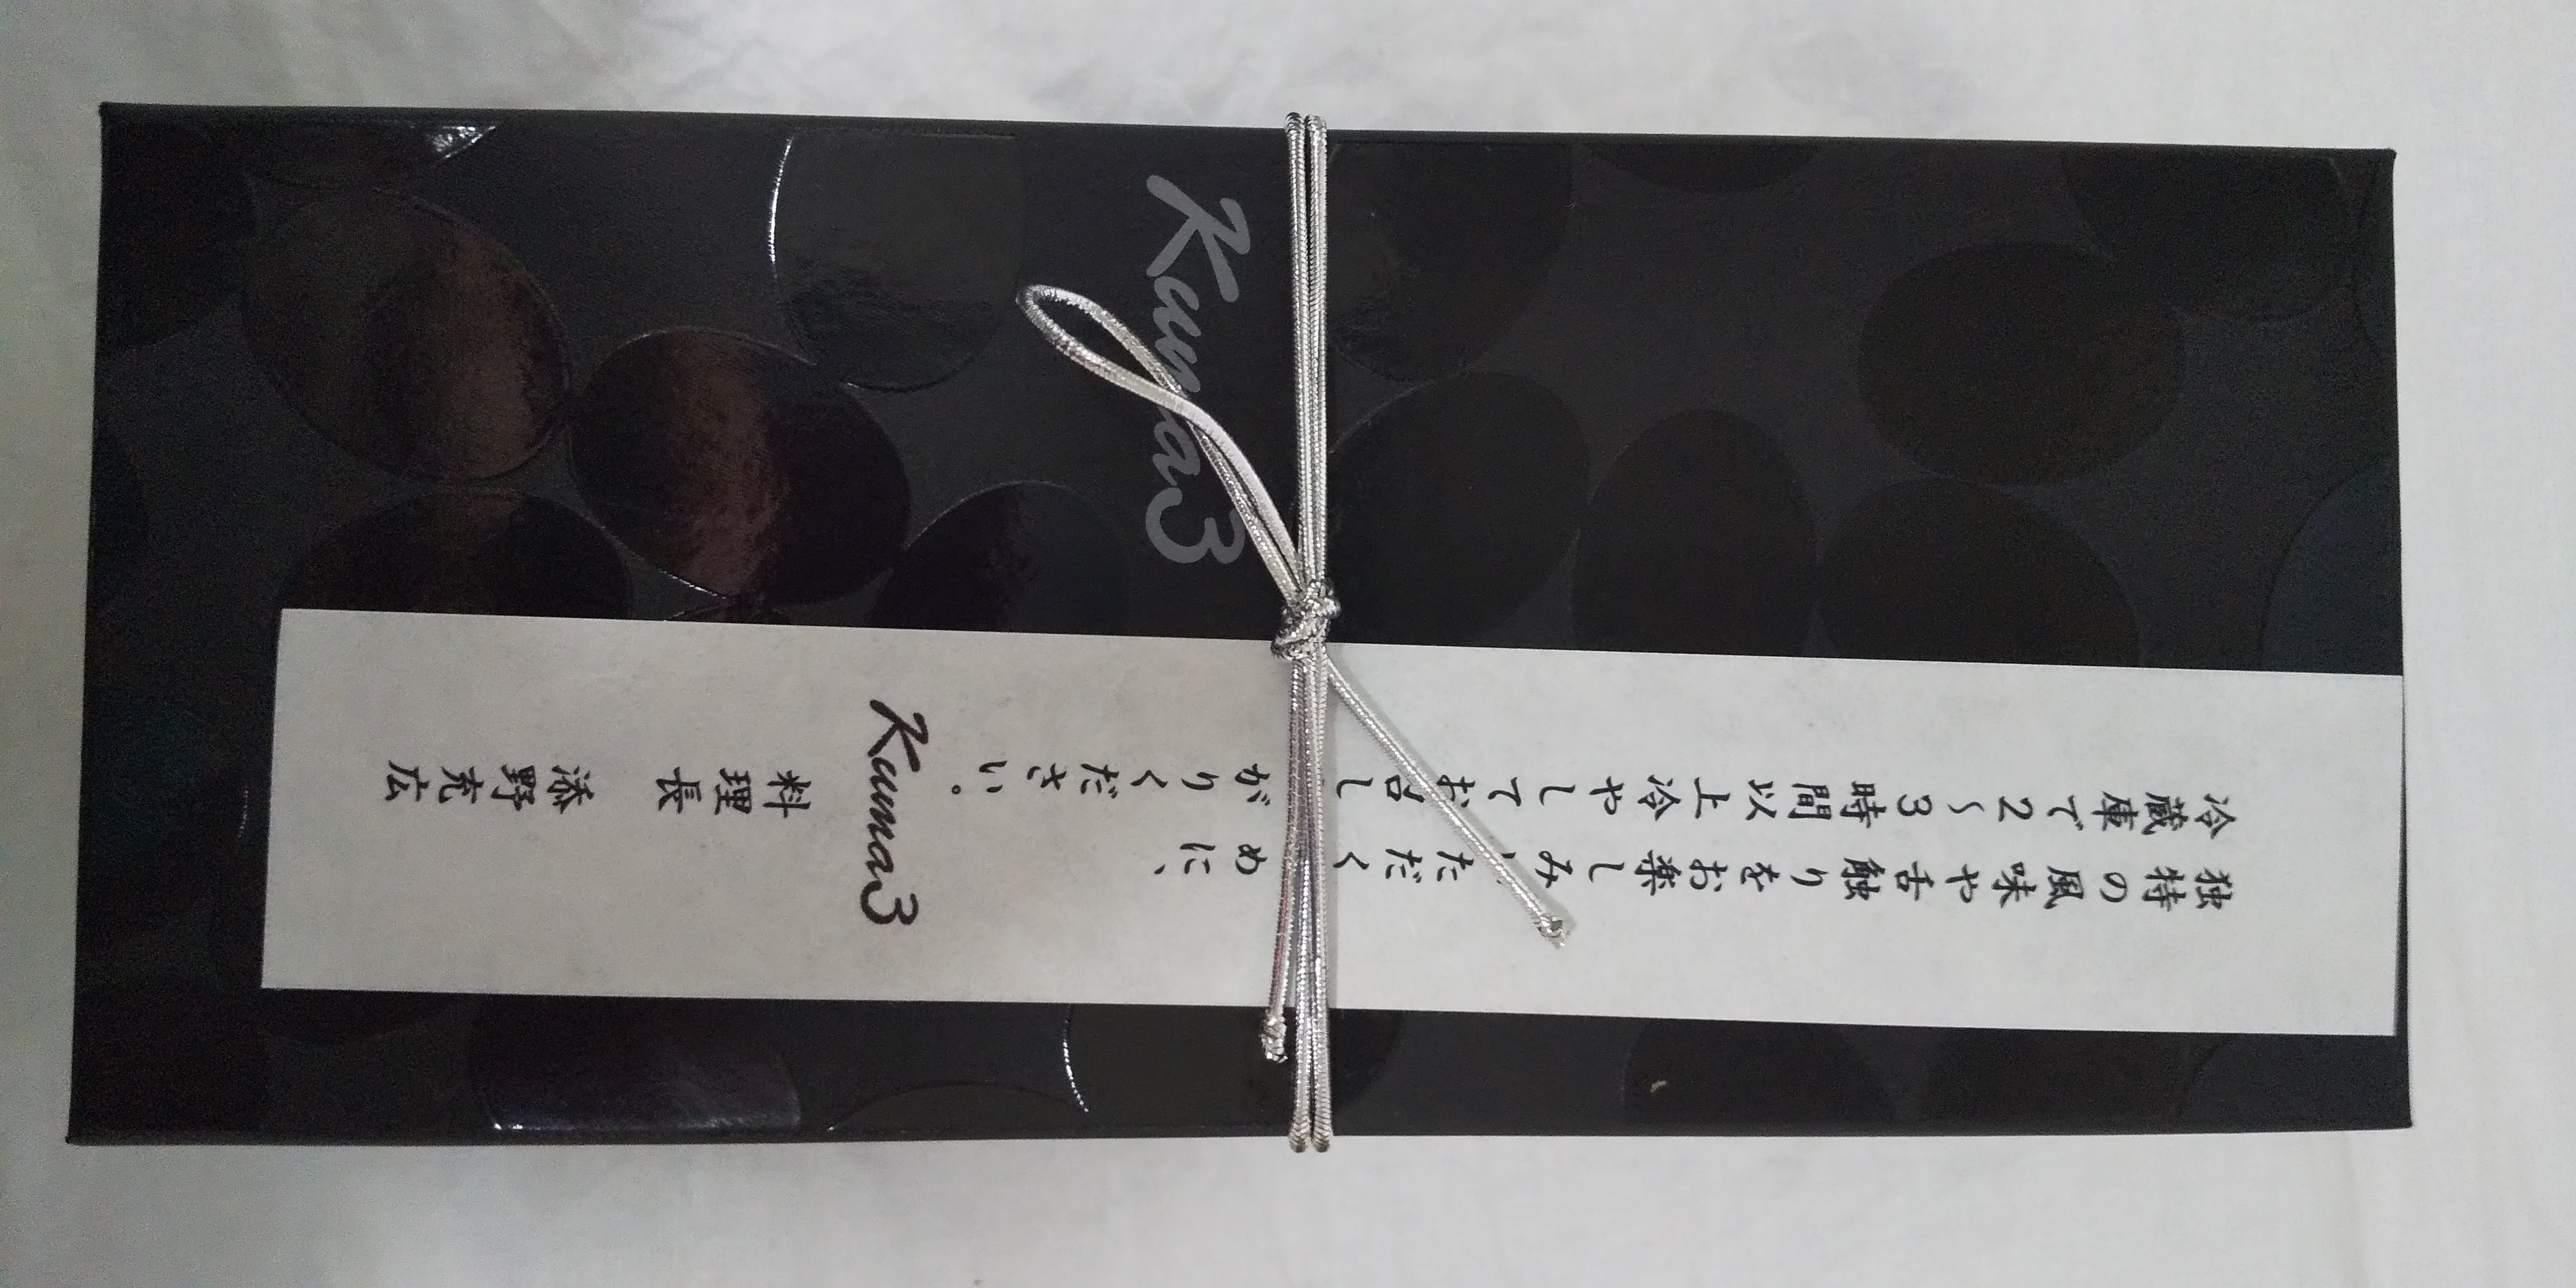 Kuma3
独特の風味や舌触りをお楽しみいただくために、
冷蔵庫で2〜3時間以上冷やしてお召し上がりください。
Kuma3
料理長 添野充広